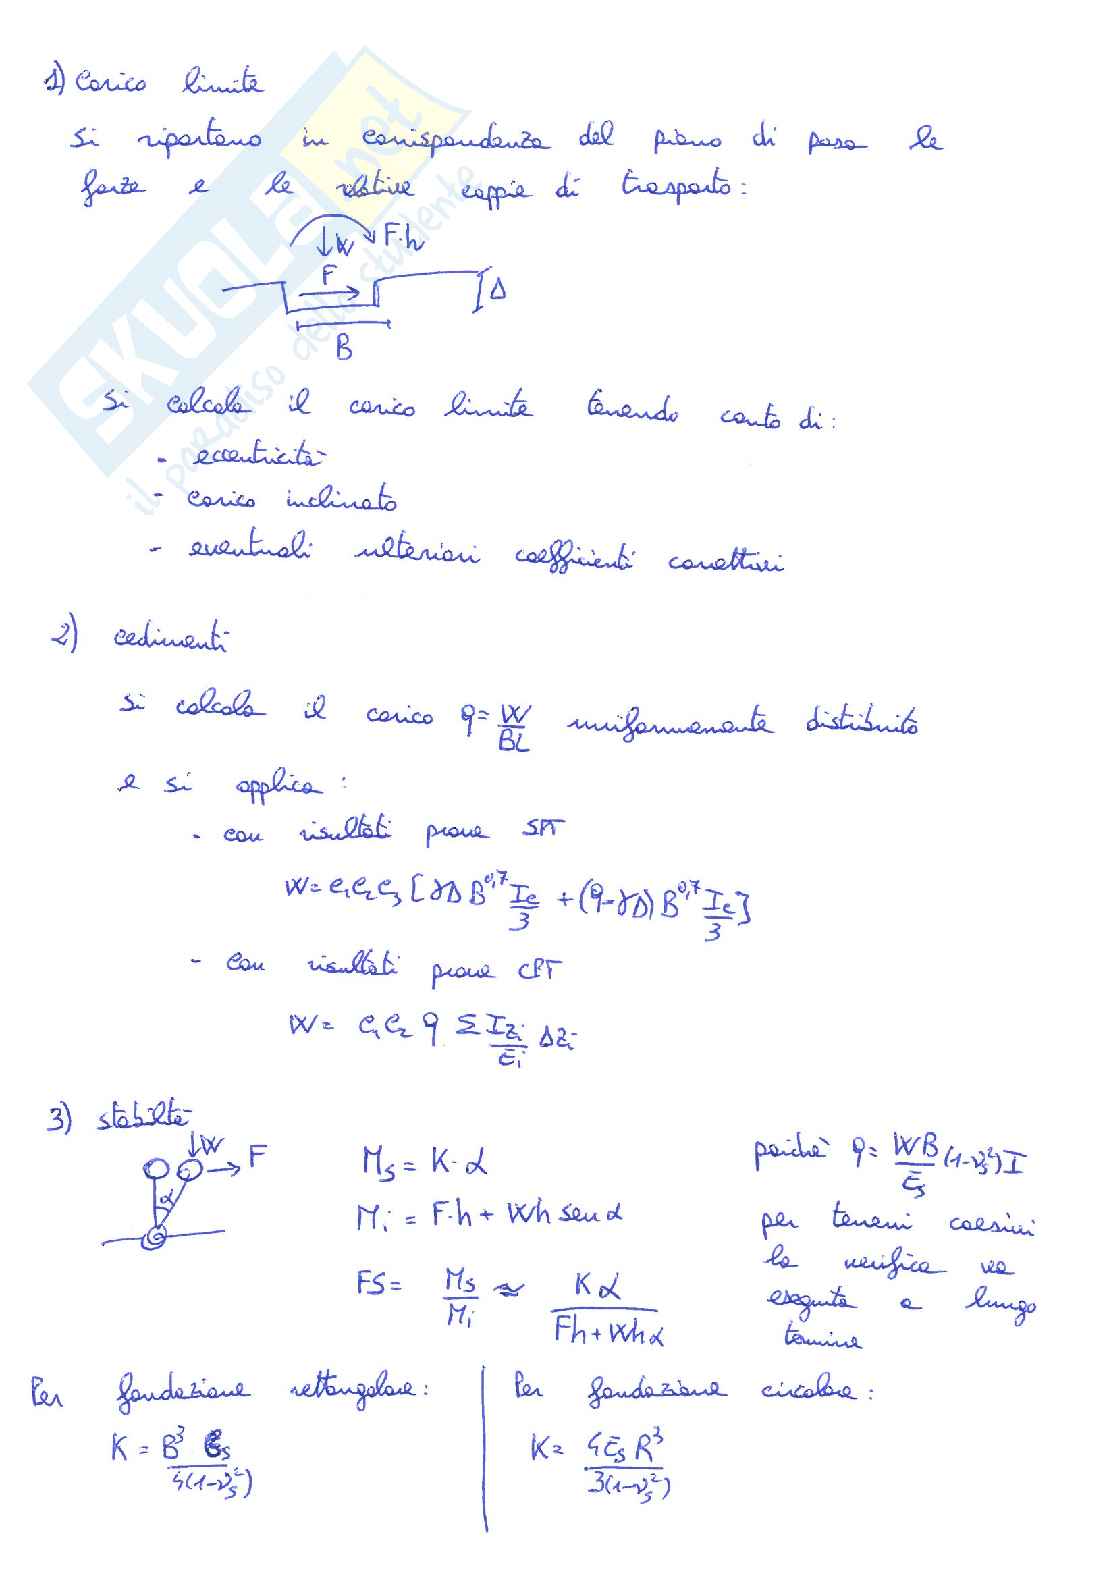 1) Carico limite
Si riportano in corrispondenza del piano di posa le
forze e le relative coppie di trasporto:
W F·h
F
Δ
B
Si calcola il carico limite tenendo conto di:
- eccentricità
- carico inclinato
- eventuali ulteriori coefficienti correttivi
2) cedimenti
Si calcola il carico q = W/BL uniformemente distribuito
e si applica:
- con risultati prove SPT
W = C₁C₂C₃ [γD B^0,7 Ic/3 + (q-γD) B^0,7 Ic/3]
- con risultati prove CPT
W = C₁C₂ q Σ Izi/Ei Δzi
3) stabilità
W F
α
Ms = K·α
Mi = F·h + Wh senα
FS = Ms/Mi ≈ Kα/(Fh+Whα)
poichè q = WB/Es (1-νs²) I
per terreni coesivi
la verifica va
eseguita a lungo
termine
Per fondazione rettangolare:
K = B³Es/4(1-νs²)
Per fondazione circolare:
K = 4EsR³/3(1-νs²)
SKUOLA.net
il paradiso dello studente